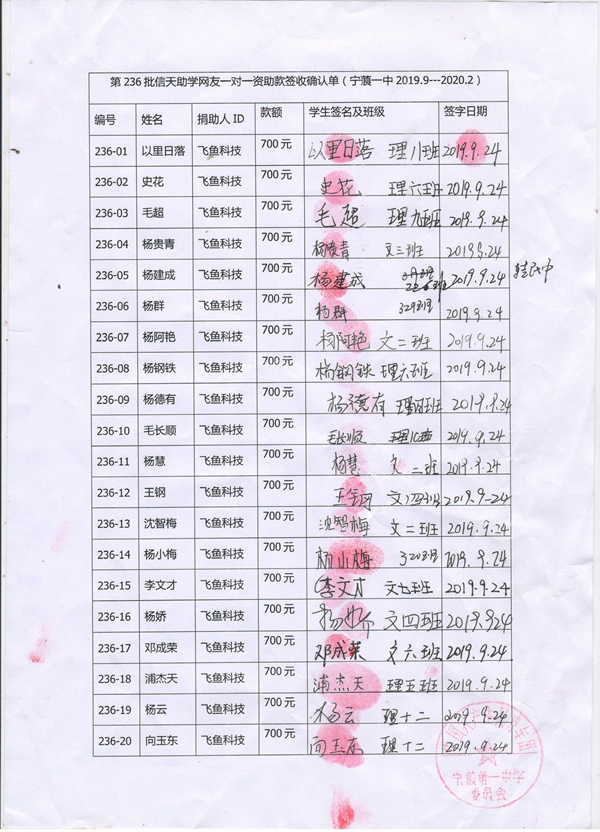 第 236 批信天助学网友一对一资助款签收确认单（宁蒗一中 2019.9---2020.2）
编号 姓名 捐助人 ID 款额 学生签名及班级 签字日期
236-01 以里日落 飞鱼科技 700 元 以里日落 理八班 2019.9.24
236-02 史花 飞鱼科技 700 元 史花 理六班 2019.9.24
236-03 毛超 飞鱼科技 700 元 毛超 理九班 2019.9.24
236-04 杨贵青 飞鱼科技 700 元 杨贵青 文三班 2019.9.24
236-05 杨建成 飞鱼科技 700 元 杨建成 2019.9.24
236-06 杨群 飞鱼科技 700 元 杨群 329班 2019.9.24
236-07 杨阿艳 飞鱼科技 700 元 杨阿艳 文二班 2019.9.24
236-08 杨钢铁 飞鱼科技 700 元 杨钢铁 理六班 2019.9.24
236-09 杨德有 飞鱼科技 700 元 杨德有 理四班 2019.9.24
236-10 毛长顺 飞鱼科技 700 元 毛长顺 2019.9.24
236-11 杨慧 飞鱼科技 700 元 杨慧 文二班 2019.9.24
236-12 王钢 飞鱼科技 700 元 王钢 2019.9-24
236-13 沈智梅 飞鱼科技 700 元 沈智梅 文二班 2019.9.24
236-14 杨小梅 飞鱼科技 700 元 杨小梅 320班 2019.9.24
236-15 李文才 飞鱼科技 700 元 李文才 文七班 2019.9.24
236-16 杨娇 飞鱼科技 700 元 杨娇 文四班 2019.9.24
236-17 邓成荣 飞鱼科技 700 元 邓成荣 文六班 2019.9.24
236-18 浦杰天 飞鱼科技 700 元 浦杰天 理五班 2019.9.24
236-19 杨云 飞鱼科技 700 元 杨云 理十二 2019.9.24
236-20 向玉东 飞鱼科技 700 元 向玉东 理十二 2019.9.24
宁蒗第一中学
委员会